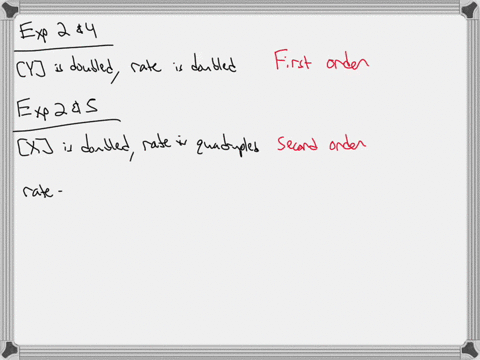 Exp 2 & 4
[Y] is doubled, rate is doubled First order
Exp 2 & 5
[X] is doubled, rate is quadruples Second order
rate -